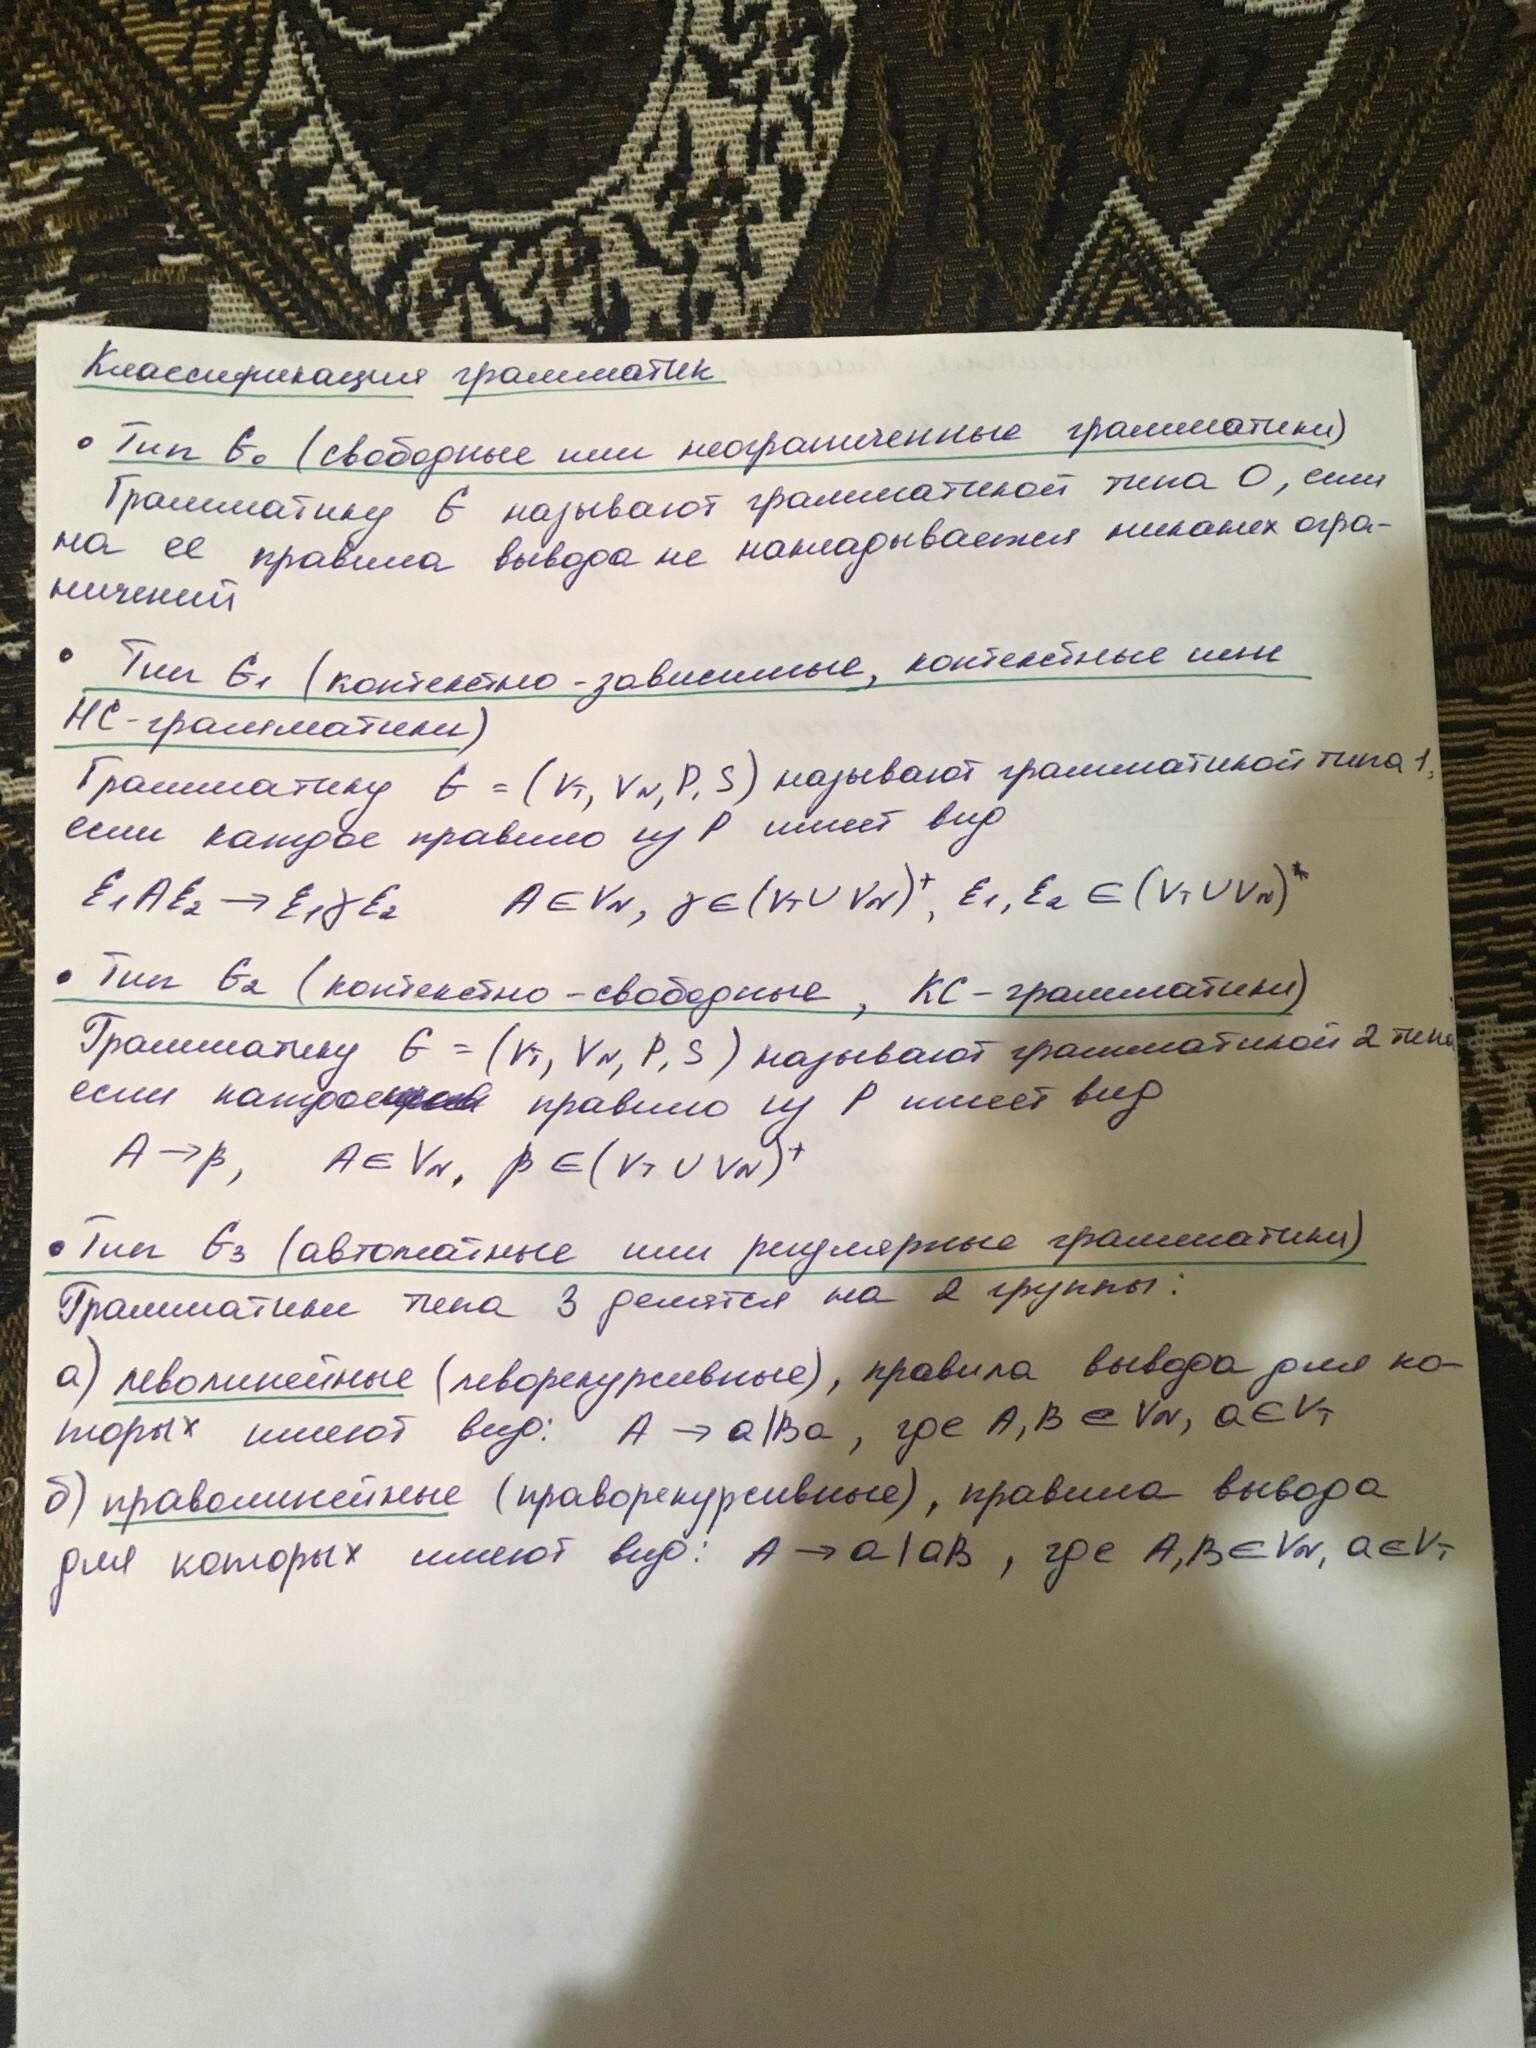 Классификация грамматик
• Тип G₀ (свободные или неограниченные грамматики)
Грамматику G называют грамматикой типа 0, если
на ее правила вывода не накладывается никаких огра-
ничений
• Тип G₁ (контекстно-зависимые, контекстные или
НС-грамматики)
Грамматику G = (V_T, V_N, P, S) называют грамматикой типа 1,
если каждое правило из P имеет вид
ξ₁Aξ₂ → ξ₁γξ₂ A ∈ V_N, γ ∈ (V_T ∪ V_N)⁺, ξ₁, ξ₂ ∈ (V_T ∪ V_N)*
• Тип G₂ (контекстно-свободные, КС-грамматики)
Грамматику G = (V_T, V_N, P, S) называют грамматикой 2 типа
если каждое правило из P имеет вид
A → β, A ∈ V_N, β ∈ (V_T ∪ V_N)⁺
• Тип G₃ (автоматные или регулярные грамматики)
Грамматики типа 3 делятся на 2 группы:
а) леволинейные (леворекурсивные), правила вывода для ко-
торых имеют вид: A → a|Ba, где A, B ∈ V_N, a ∈ V_T
б) праволинейные (праворекурсивные), правила вывода
для которых имеют вид: A → a|aB, где A, B ∈ V_N, a ∈ V_T